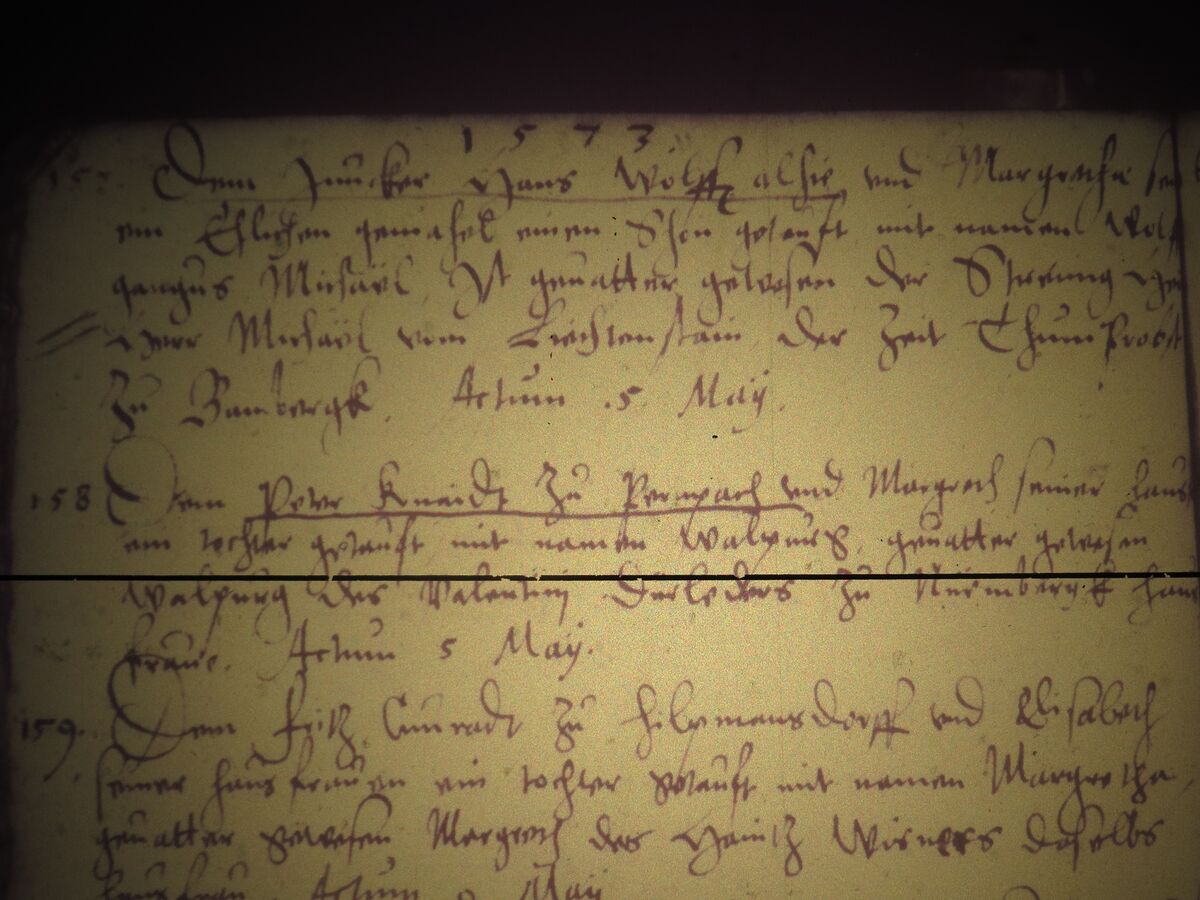 1573
Dem Juncker Hans Wolff alhie, vnd Margretha
ein Ehlichen gemahel einen Shon getaufft mit namen Wolf
gangus Michäel, Ist geuatter gewesen der
Herr Michäel vom Liechtenstain der Zeit Thum Probst
Zu Bambergk. Actum .5. Maij.
158 Dem Peter Kneidt Zu vnd Margreth seiner haus
ein tochter getaufft mit namen Walpurg, geuatter gewesen
Walpurg des Valentin Zu Nürmbergk haus
fraue. Actum 5 Maij.
159. Dem Fritz Cunradt Zu hilpmansdorff vnd Elisabeth
seiner hausfrauen ein tochter getaufft mit namen Margretha,
geuatter gewesen Margreth des Haintz daselbs
hausfrau. Actum Maij